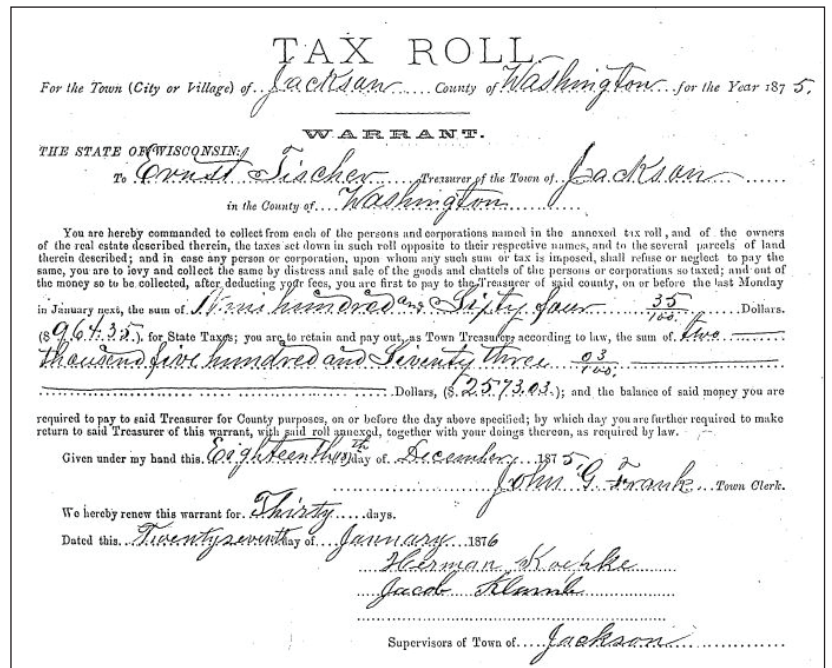 TAX ROLL
For the Town (City or Village) of Jackson County of Washington for the Year 1875.
WARRANT.
THE STATE OF WISCONSIN:
To Ernst Tischer Treasurer of the Town of Jackson
in the County of Washington
You are hereby commanded to collect from each of the persons and corporations named in the annexed tax roll, and of the owners
of the real estate described therein, the taxes set down in such roll opposite to their respective names, and to the several parcels of land
therein described; and in case any person or corporation, upon whom any such sum or tax is imposed, shall refuse or neglect to pay the
same, you are to levy and collect the same by distress and sale of the goods and chattels of the persons or corporations so taxed; and out of
the money so to be collected, after deducting your fees, you are first to pay to the Treasurer of said county, on or before the last Monday
in January next, the sum of Nine hundred and Sixty four 35/100 Dollars.
($964.35.), for State Taxes; you are to retain and pay out, as Town Treasurer, according to law, the sum of two
thousand five hundred and Seventy three 03/100
Dollars, ($2573.03.); and the balance of said money you are
required to pay to said Treasurer for County purposes, on or before the day above specified; by which day you are further required to make
return to said Treasurer of this warrant, with said roll annexed, together with your doings thereon, as required by law.
Given under my hand this Eighteenth day of December, 1875,
John G. Frank Town Clerk.
We hereby renew this warrant for Thirty days.
Dated this Twentyseventh day of January 1876
Herman Koepke
Jacob Klumb
Supervisors of Town of Jackson